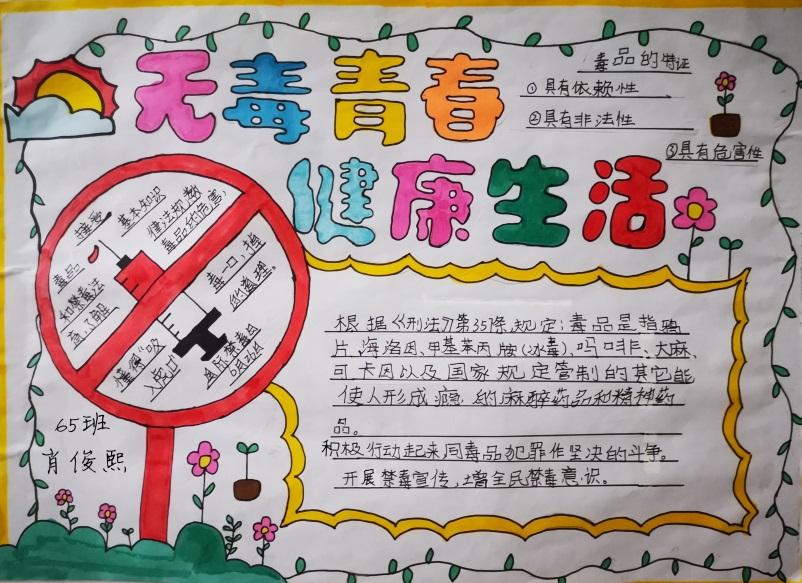 无毒青春
健康生活
毒品的特征
①具有依赖性
②具有非法性
③具有危害性
接受
基本知识
毒品
律法规教
毒品的危害,
和禁毒法
毒一口,掉
的道理。
懂得“吸
国际禁毒日
根据《刑法》第35条规定:毒品是指鸦
片、海洛因、甲基苯丙胺(冰毒)、吗啡、大麻、
可卡因以及国家规定管制的其它能
使人形成瘾 的麻醉药品和精神药
品。
积极行动起来同毒品犯罪作坚决的斗争。
开展禁毒宣传,增全民禁毒意识。
65班
肖俊熙